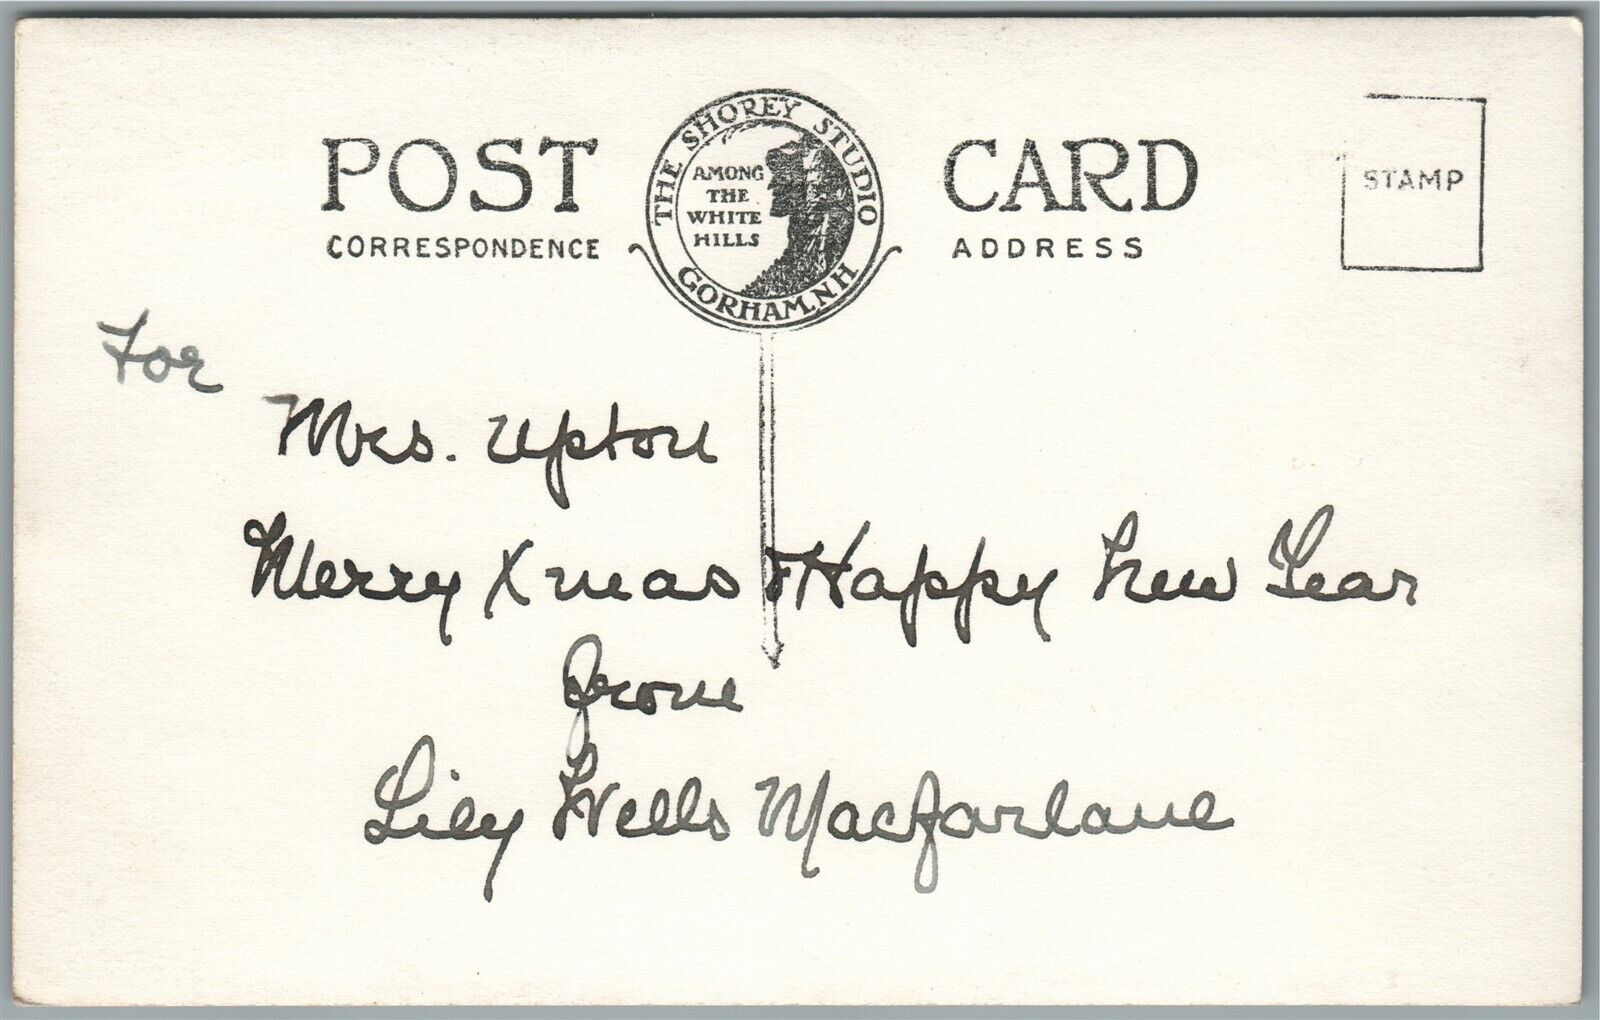 POST CARD
THE SHOREY STUDIO
AMONG
THE
WHITE
HILLS
GORHAM, N.H
CORRESPONDENCE
ADDRESS
STAMP
For
Mrs. Upton
Merry Xmas & Happy New Year
from
Lily Wells Macfarlane